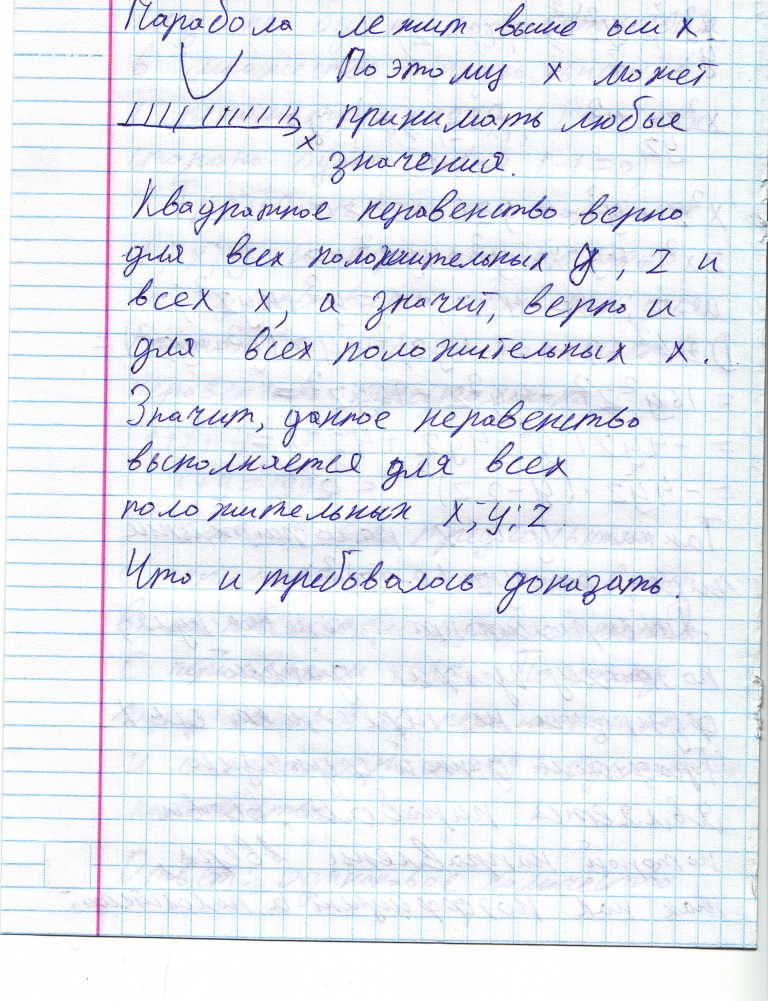 Парабола лежит выше оси x.
Поэтому x может
принимать любые
x
значения.
Квадратное неравенство верно
для всех положительных y, z и
всех x, а значит, верно и
для всех положительных x.
Значит, данное неравенство
выполняется для всех
положительных x; y; z.
Что и требовалось доказать.